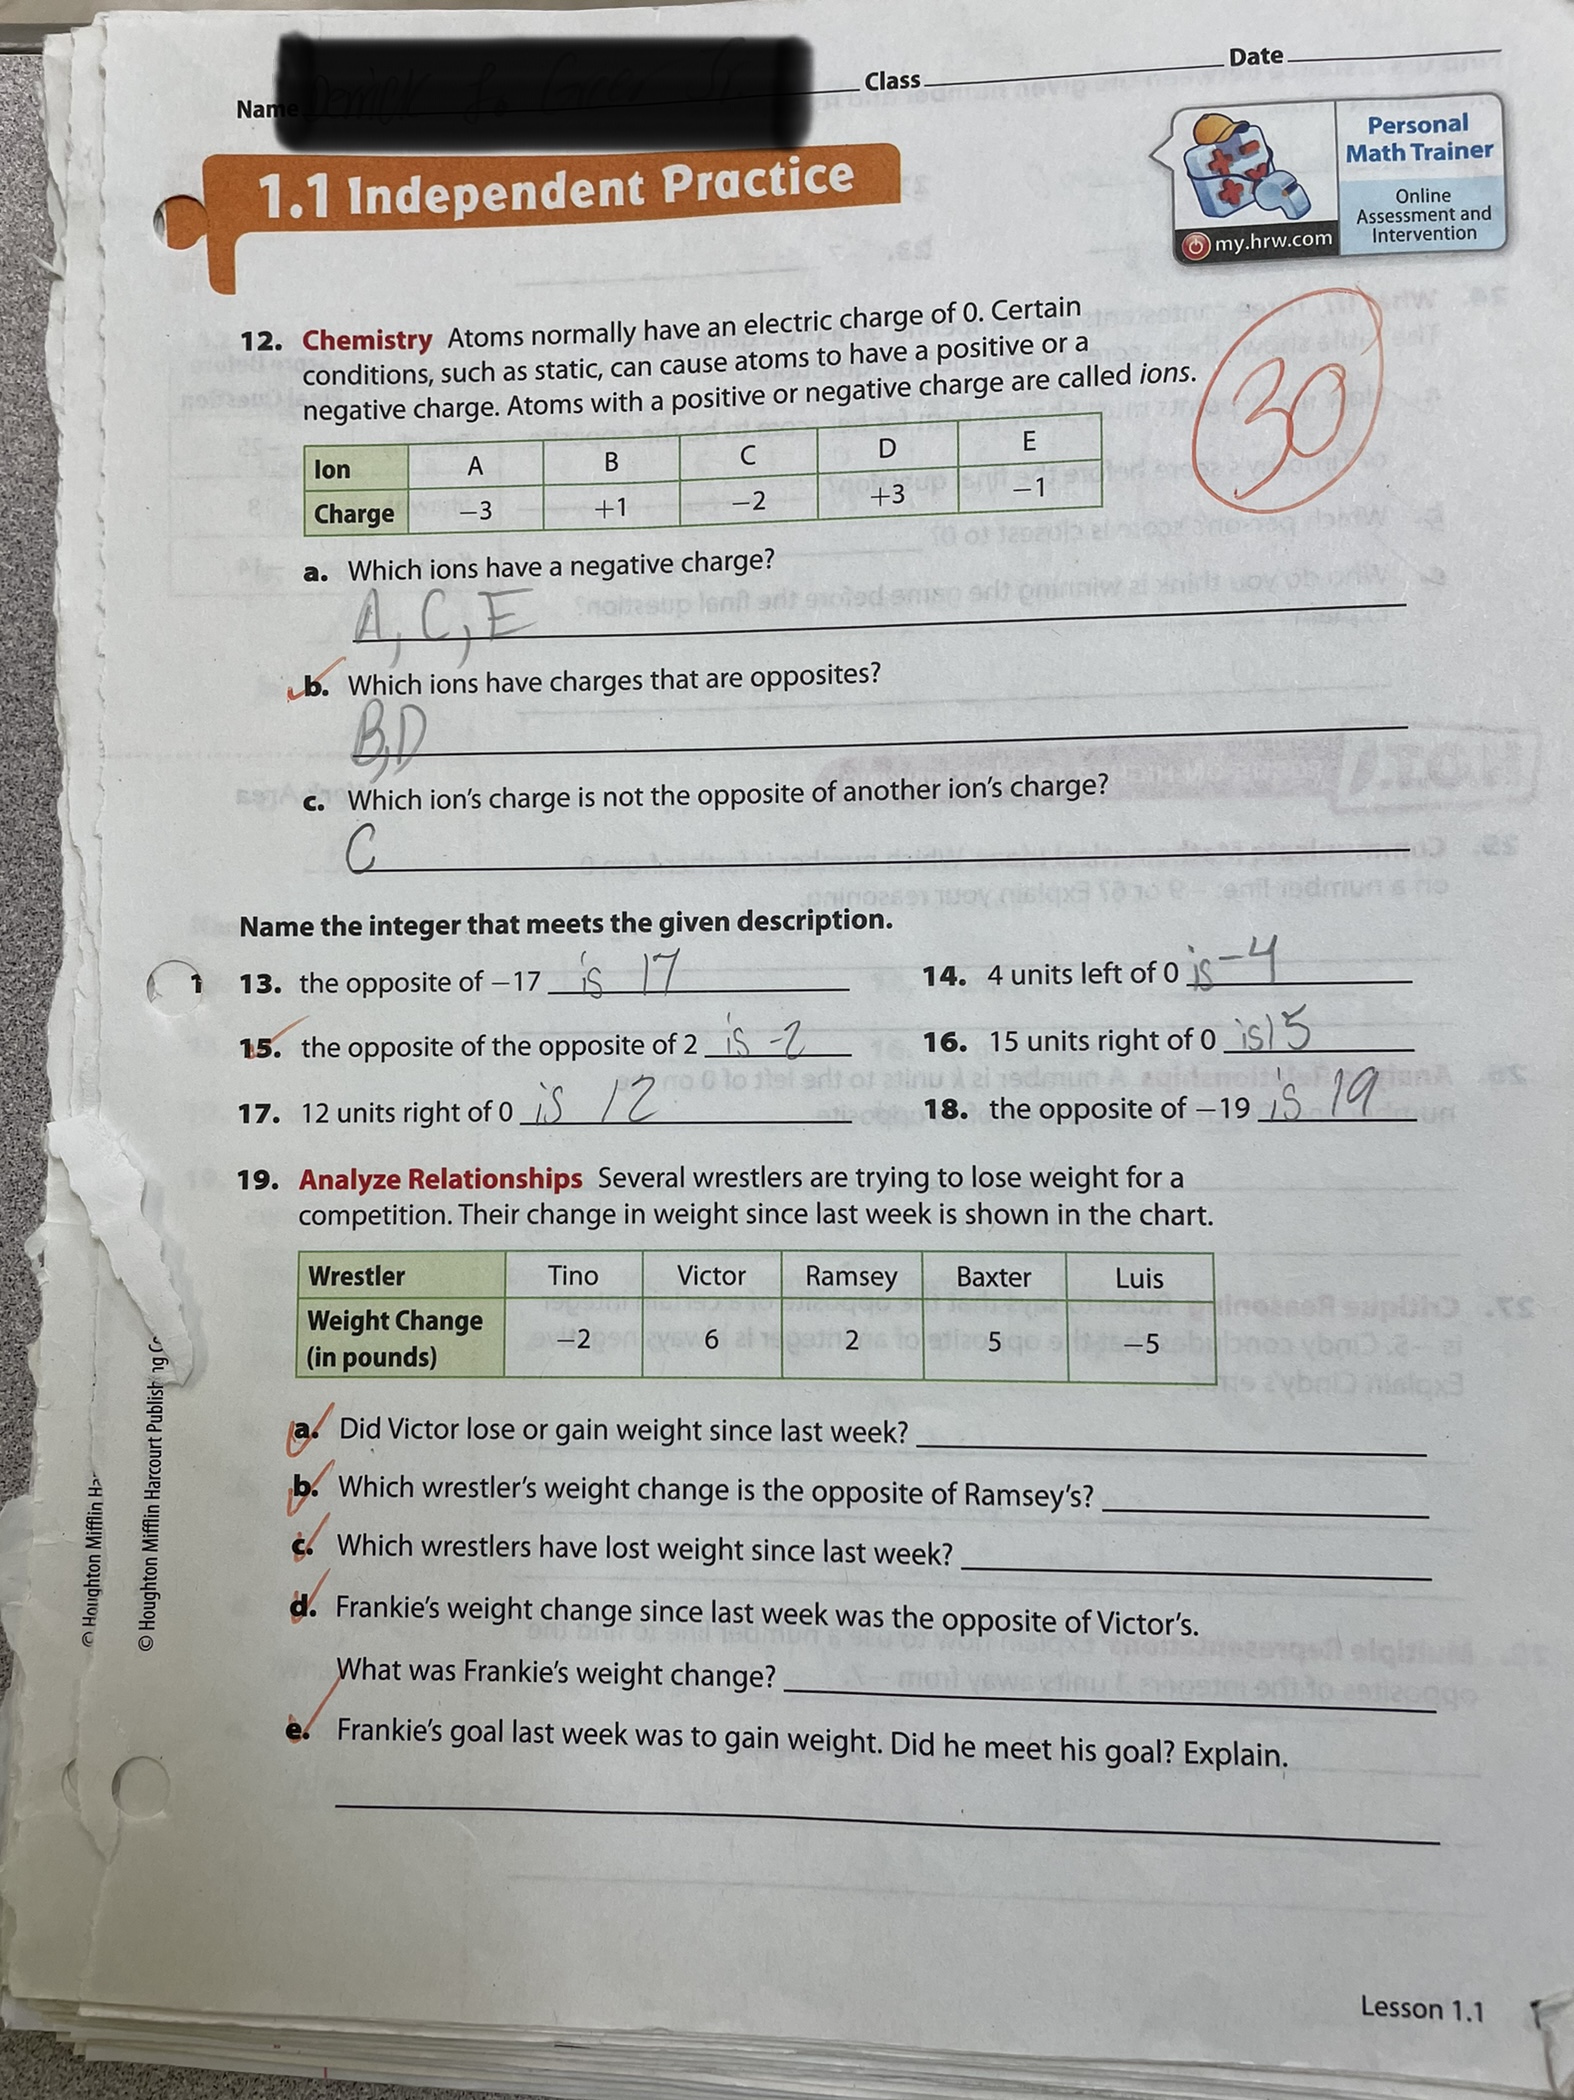 Name
Class
Date
1.1 Independent Practice
Personal
Math Trainer
Online
Assessment and
Intervention
my.hrw.com
30
12. Chemistry Atoms normally have an electric charge of 0. Certain
conditions, such as static, can cause atoms to have a positive or a
negative charge. Atoms with a positive or negative charge are called ions.
Ion A B C D E
Charge −3 +1 −2 +3 −1
a. Which ions have a negative charge?
A, C, E
b. Which ions have charges that are opposites?
B,D
c. Which ion's charge is not the opposite of another ion's charge?
C
Name the integer that meets the given description.
13. the opposite of −17 is 17
14. 4 units left of 0 is -4
15. the opposite of the opposite of 2 is -2
16. 15 units right of 0 is 15
17. 12 units right of 0 is 12
18. the opposite of −19 is 19
19. Analyze Relationships Several wrestlers are trying to lose weight for a
competition. Their change in weight since last week is shown in the chart.
Wrestler Tino Victor Ramsey Baxter Luis
Weight Change
(in pounds) −2 6 2 5 −5
a. Did Victor lose or gain weight since last week?
b. Which wrestler's weight change is the opposite of Ramsey's?
c. Which wrestlers have lost weight since last week?
d. Frankie's weight change since last week was the opposite of Victor's.
What was Frankie's weight change?
e. Frankie's goal last week was to gain weight. Did he meet his goal? Explain.
© Houghton Mifflin
© Houghton Mifflin Harcourt
Lesson 1.1